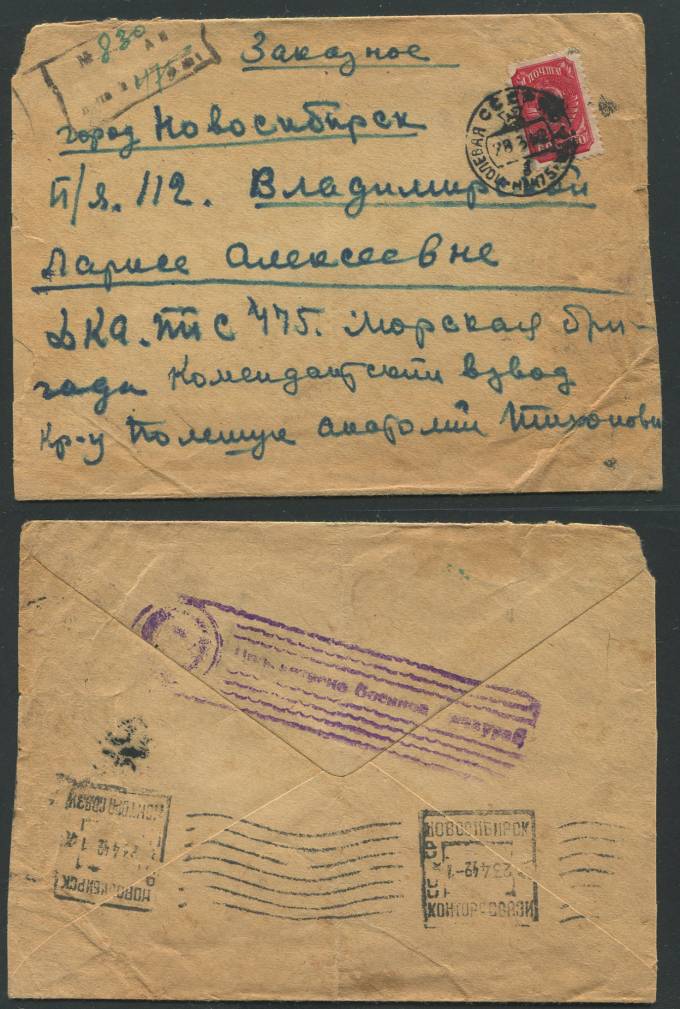 № 830
Заказное
475
город Новосибирск
П/я. 112. Владимирской
Ларисе Алексеевне
ДКА. ППС 475. Морская бри-
гада Комендатский взвод
Кр-у Полещук Анатолий Тихонови
ПОЛЕВАЯ СССР
28 3
Просмотрено Военной Цензурой
НОВОСИБИРСК
23.4.42.1
КОНТОРА СВЯЗИ
НОВОСИБИРСК
23.4.42-1
КОНТОРА СВЯЗИ